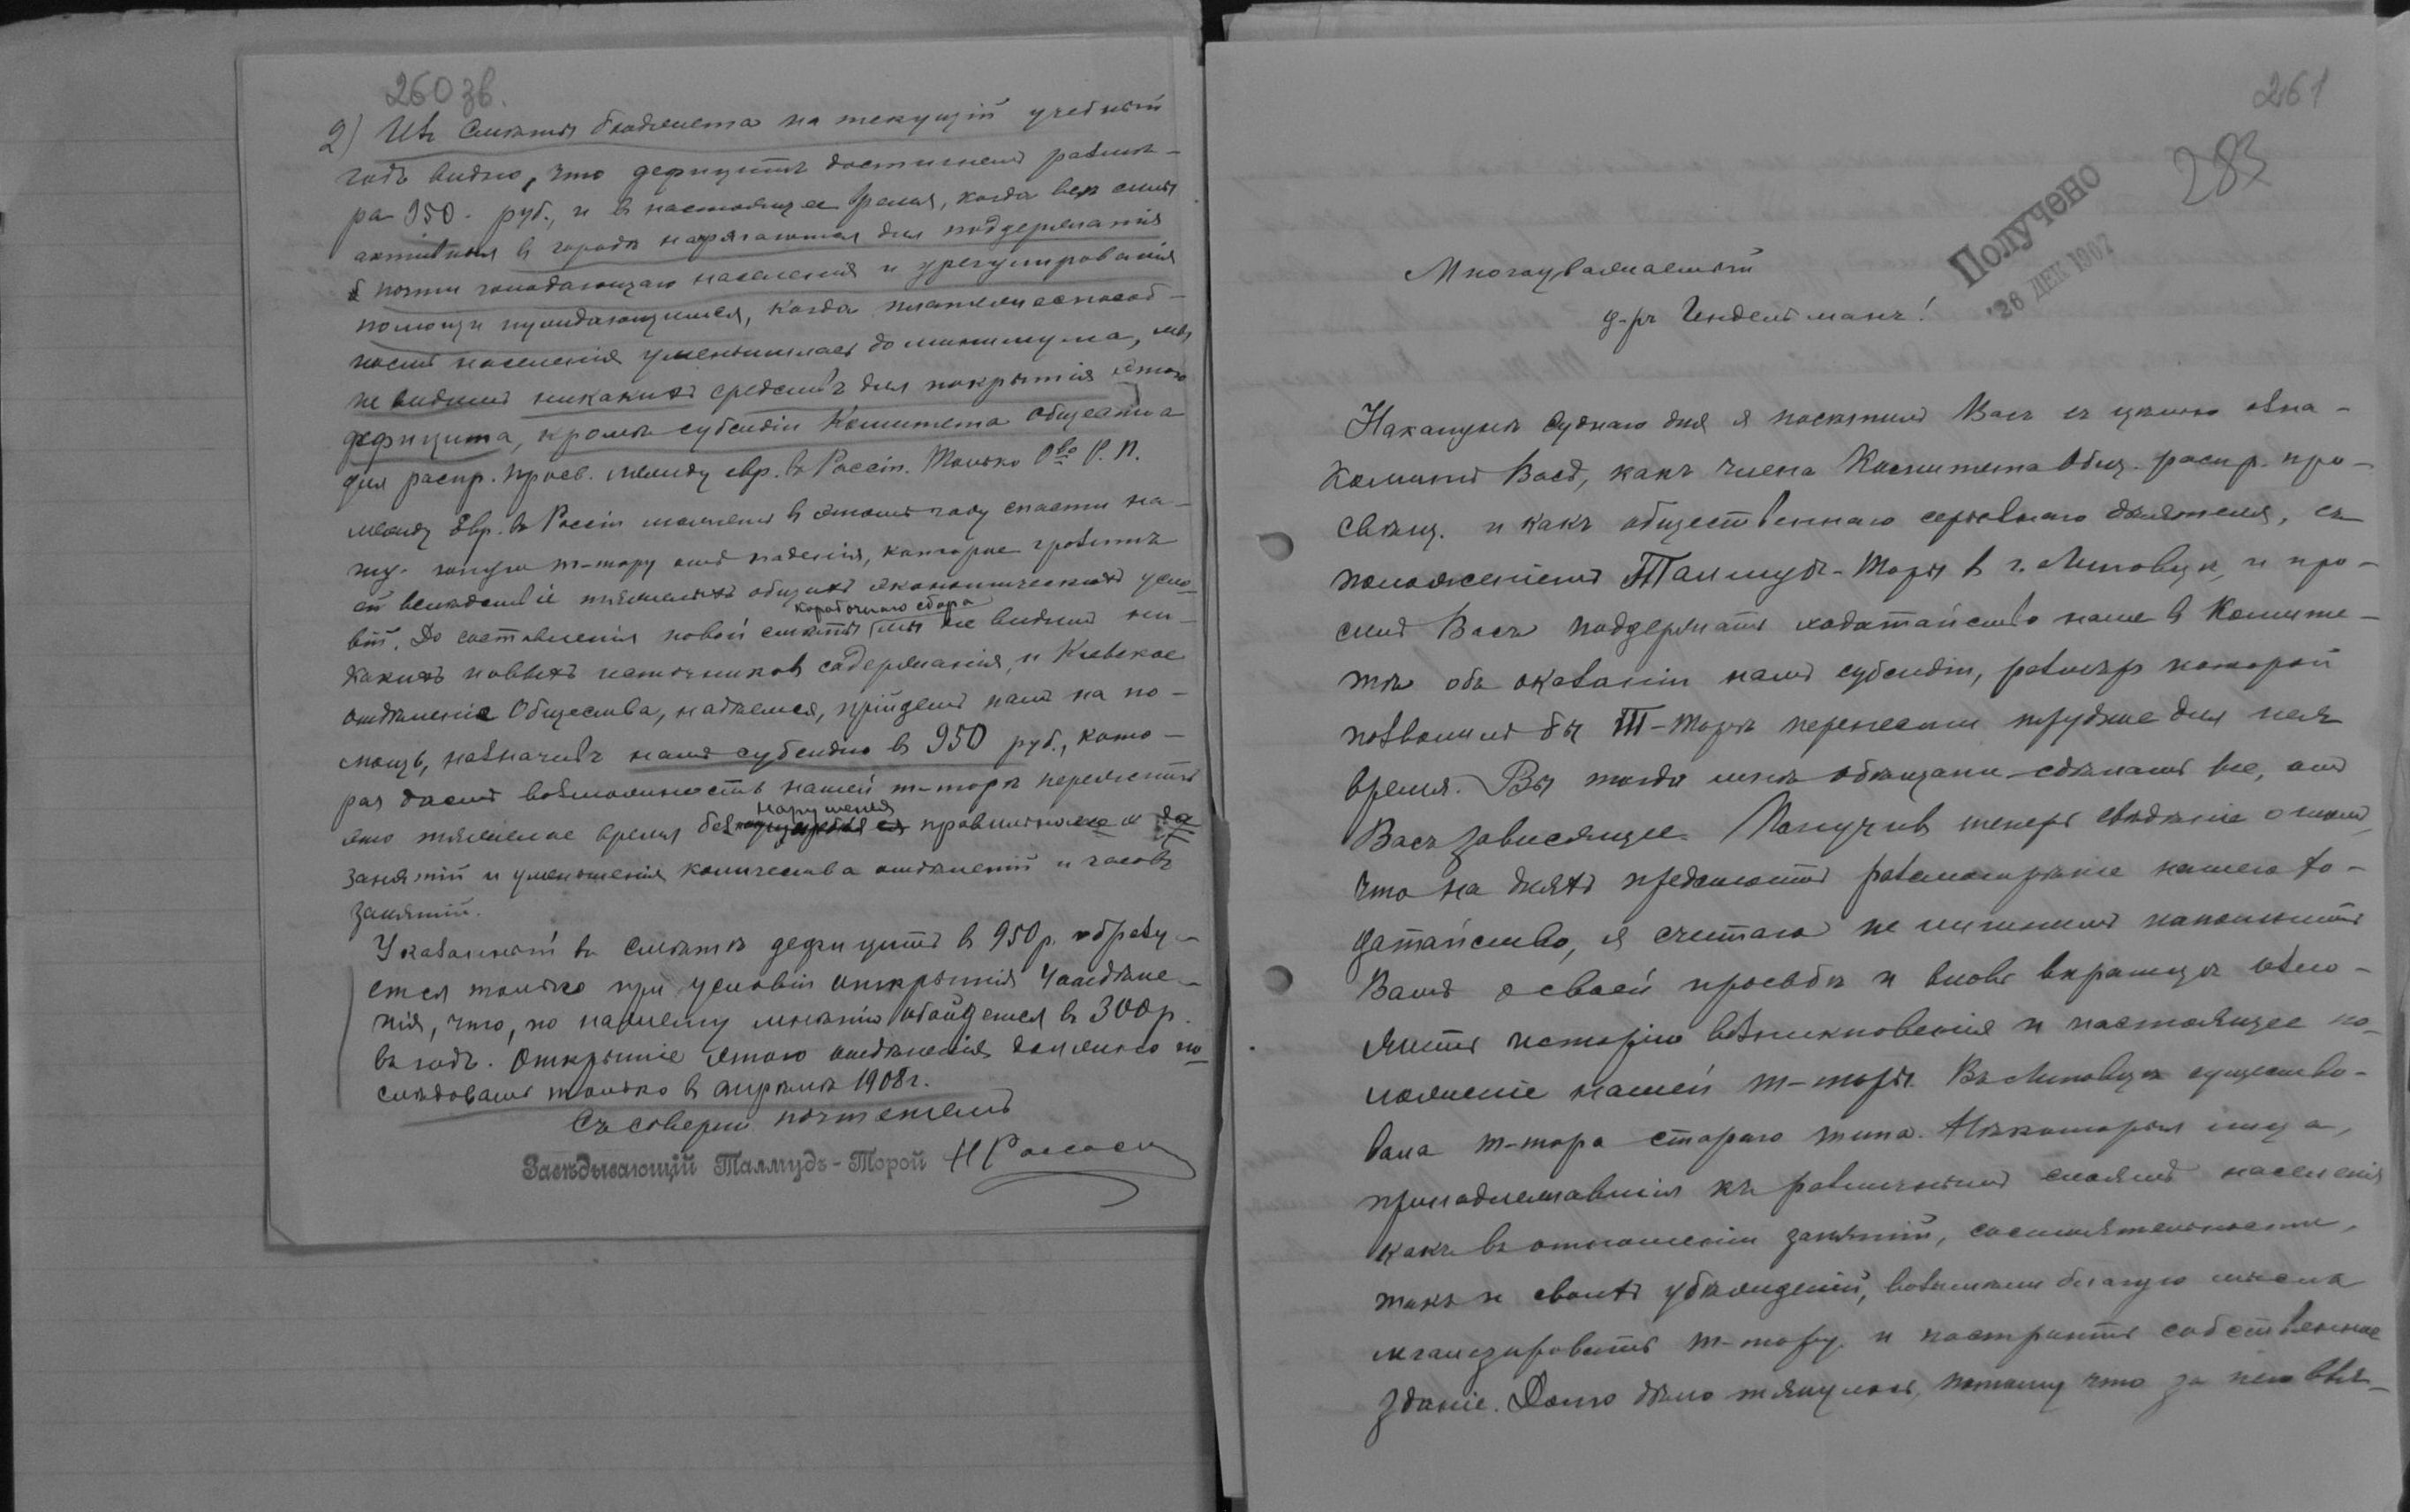 260 зв.
2) Изъ смѣты бюджета на текущій учебный
годъ видно, что дефицитъ достигнетъ размѣ-
ра 950 руб., и въ настоящее время, когда всѣ силы
активныя в городѣ напрягаются для поддержанія
почти голодающаго населенія и урегулированія
помощи нуждающимся, когда платежеспособ-
ность населенія уменьшилась до минимума, мы
не видимъ никакихъ средствъ для покрытія этого
дефицита, кромѣ субсидіи Комитета Общества
для распр. просв. между евр. въ Россіи. Только О-во Р. П.
между Евр. въ Россіи можетъ в этомъ году спасти на-
шу т-тору отъ паденія, которое грозитъ
ей вслѣдствіе тяжелыхъ общихъ экономическихъ усло-
вій. До составленія новой смѣты коробочнаго сбора мы не видимъ ни-
какихъ новыхъ источниковъ содержанія, и Кіевское
отдѣленіе Общества, надѣемся, прійдетъ намъ на по-
мощь, назначивъ намъ субсидію в 950 руб., кото-
рая даетъ возможность нашей т-торѣ пережить
это тяжелое время без нарушенія правильнаго
занятій и уменьшенія количества отдѣленій и часовъ
занятій.
Указанный въ смѣтѣ дефицитъ в 950 р. образу-
ется только при условіи открытія 4 отдѣле-
нія, что, по нашему мнѣнію обойдется в 300 р.
въ годъ. Открытіе этого отдѣленія должно по-
слѣдовать только в апрѣлѣ 1908 г.
Съ соверш. почтеніемъ
Завѣдывающій Талмудъ-Торой
261
283
Получено
26 ДЕК 1907
Многоуважаемый
д-ръ Гиндельманъ!
Наканунѣ Суднаго дня я посѣтилъ Васъ съ цѣлью озна-
комить Васъ, какъ члена Комитета Общ. распр. про-
свѣщ. и какъ общественнаго серьезнаго дѣятеля, съ
положеніемъ Талмудъ-Торы в г. Липовцѣ, и про-
силъ Васъ поддержать ходатайство наше в Комите-
тѣ объ оказаніи намъ субсидіи, размѣр которой
позволилъ бы Т-Торѣ перенести трудное для нея
время. Вы тогда мнѣ обѣщали сдѣлать все, отъ
Васъ зависящее. Получив теперь свѣдѣніе о томъ,
что на дняхъ предстоитъ разсмотрѣніе нашего хо-
датайство, я считаю не лишнимъ напомнить
Вамъ о своей просьбѣ и вновь вкратцѣ изло-
жить исторію возникновенія и настоящее по-
ложеніе нашей т-торы. Въ Липовцѣ существо-
вала т-тора стараго типа. Нѣкоторыя лица,
принадлежавшія къ различнымъ слоямъ населенія
какъ въ отношеніи занятій, состоятельности,
такъ и своихъ убѣжденій, возымѣли благую мысль
организировать т-тору и построить собственное
зданіе. Долго дѣло тянулось, потому что за него взя-